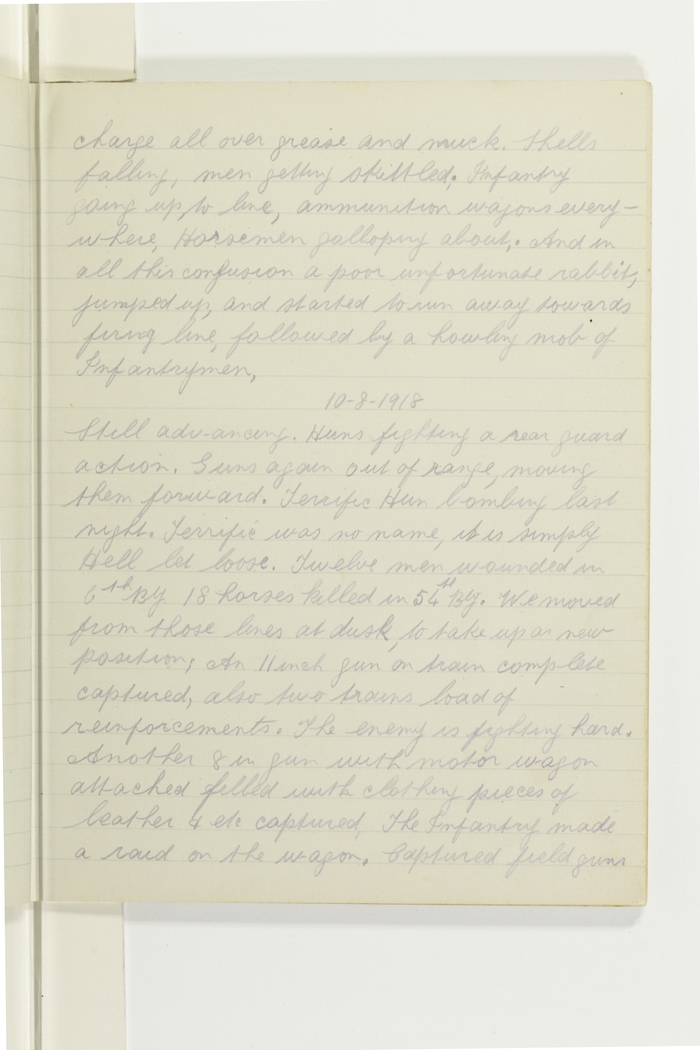 charge all over grease and muck. Shells
falling, men getting skittled; Infantry
going up, to line, ammunition wagons every-
where, Horsemen galloping about,. And in
all this confusion a poor unfortunate rabbit,
jumped up, and started to run away towards
firing line, followed by a howling mob of
Infantrymen,
10-8-1918
Still adv-ancing. Huns fighting a rear guard
action. Guns again out of range, moving
them forward. Terrific Hun bombing last
night. Terrific was no name, it is simply
Hell let loose. Twelve men wounded in
6th By 18 horses killed in 54th By. We moved
from those lines at dusk, to take up a new
position; An 11 inch gun on train complete
captured, also two trains load of
reinforcements. The enemy is fighting hard.
Another 8 in gun with motor wagon
attached filled with clothing pieces of
leather & etc captured, The Infantry made
a raid on the wagon. Captured field guns